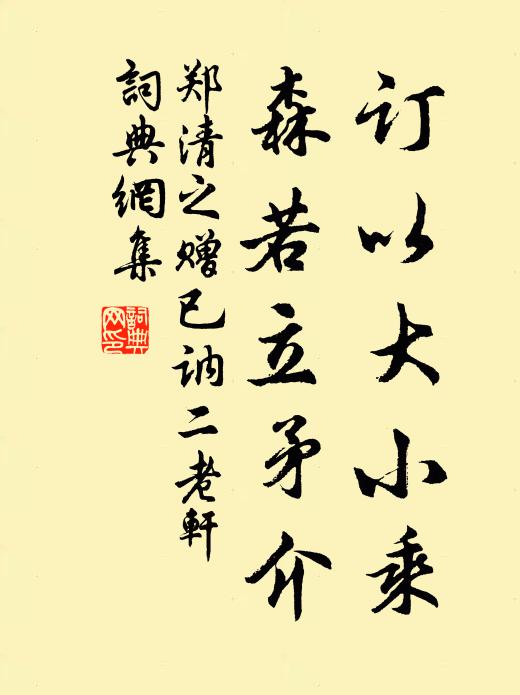 订以大小乘
森若立矛介
郑清之赠已讷二老軒
詞典網集
詞典网印